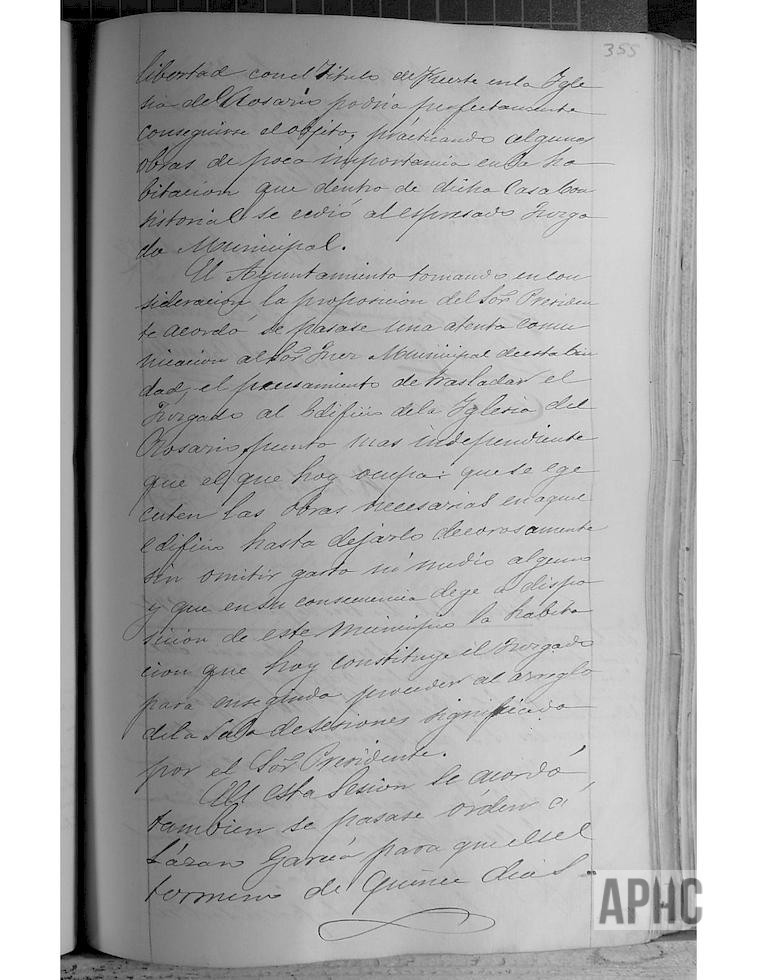 355
libertad con el Titulo de Fuerte en la Igle
sia de Rosario podria perfectamente
conseguirse el objeto, practicando algunas
obras de poca importancia en la ha
bitacion que dentro de dicha Casa Con
historial se cedió al espresado Juzga
do Municipal.
El Ayuntamiento tomando en con
sideracion la proposicion del Sor. Presiden
te acordó se pasase una atenta comu
nicacion al Sor. Juez Municipal de esta Ciu
dad, el pensamiento de trasladar el
Juzgado al Edificio de la Iglesia del
Rosario, punto mas independiente
que el que hoy ocupa: que se ege
cuten las obras necesarias en aquel
edificio hasta dejarlo decorosamente
sin omitir gasto ni medio alguno
y que en su consecuencia dege a dispo
sicion de este Municipio la habita
cion que hoy constituye el Juzgado
para enseguida proceder al arreglo
de la Sala de sesiones significado
por el Sor. Presidente.
En esta Sesion se acordó
tambien se pasase orden á
Lázaro García para que en el
termino de quince dias
APHC